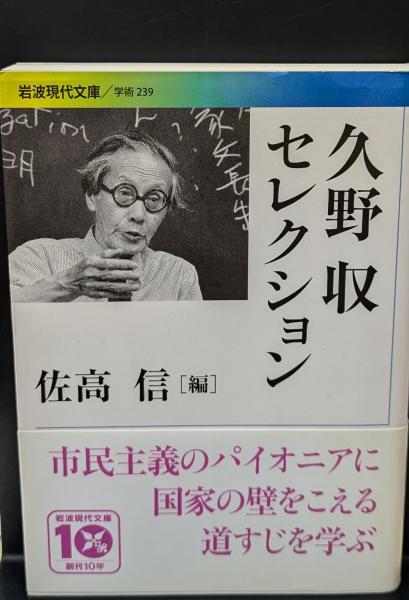 岩波現代文庫／学術 239
久野 収
セレクション
佐高 信［編］
市民主義のパイオニアに
国家の壁をこえる
道すじを学ぶ
岩波現代文庫
10
創刊10年